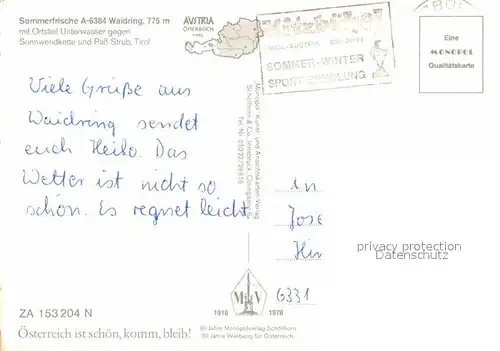 Sommerfrische A-6384 Waidring, 775 m
mit Ortsteil Unterwasser gegen
Sonnwendkette und Paß Strub, Tirol
AUSTRIA
ÖSTERREICH
Kitzbühel
TIROL-AUSTRIA 800-2000 m
SOMMER-WINTER
SPORT ERHOLUNG
Eine
MONOPOL
Qualitätskarte
Viele Grüße aus
Waidring sendet
euch Heiko. Das
Wetter ist nicht so
schön. Es regnet leicht.
Monopol Kunst- und Ansichtskarten-Verlag
Schöllhorn & Co., Innsbruck
Tel. Nr.
Jose
Hin
privacy protection
Datenschutz
6331
M V
1918 1978
ZA 153 204 N
Österreich ist schön, komm, bleib!
60 Jahre Monopolverlag Schöllhorn
60 Jahre Werbung für Österreich